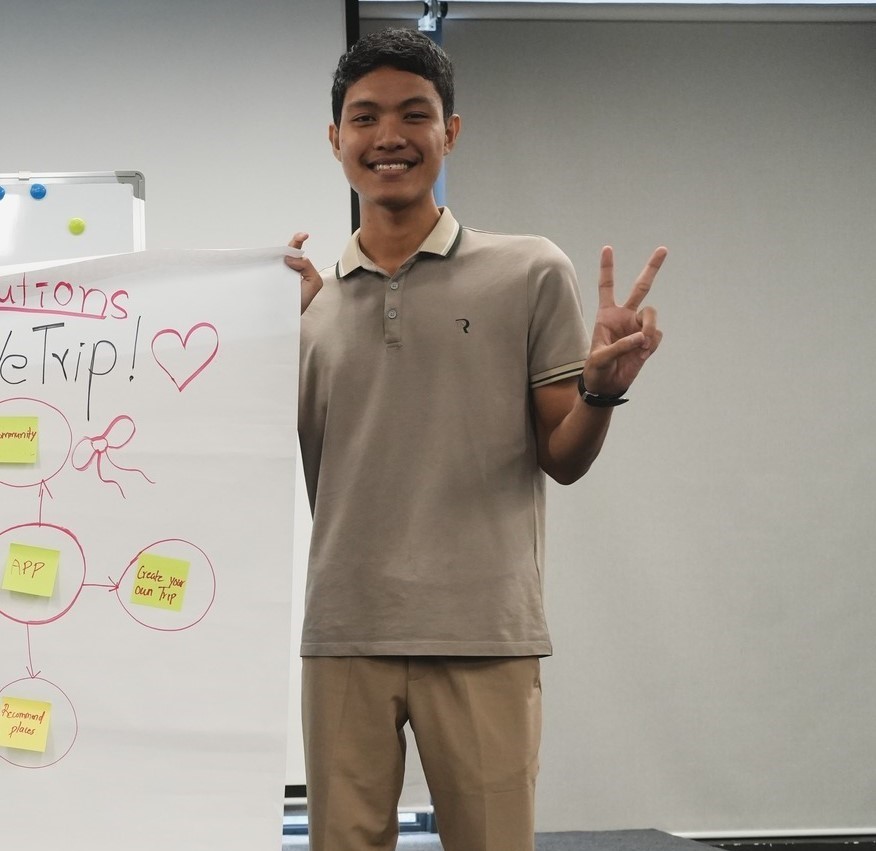 utions
WeTrip!
ommunity
APP
Create your
own Trip
Recommend
places
R